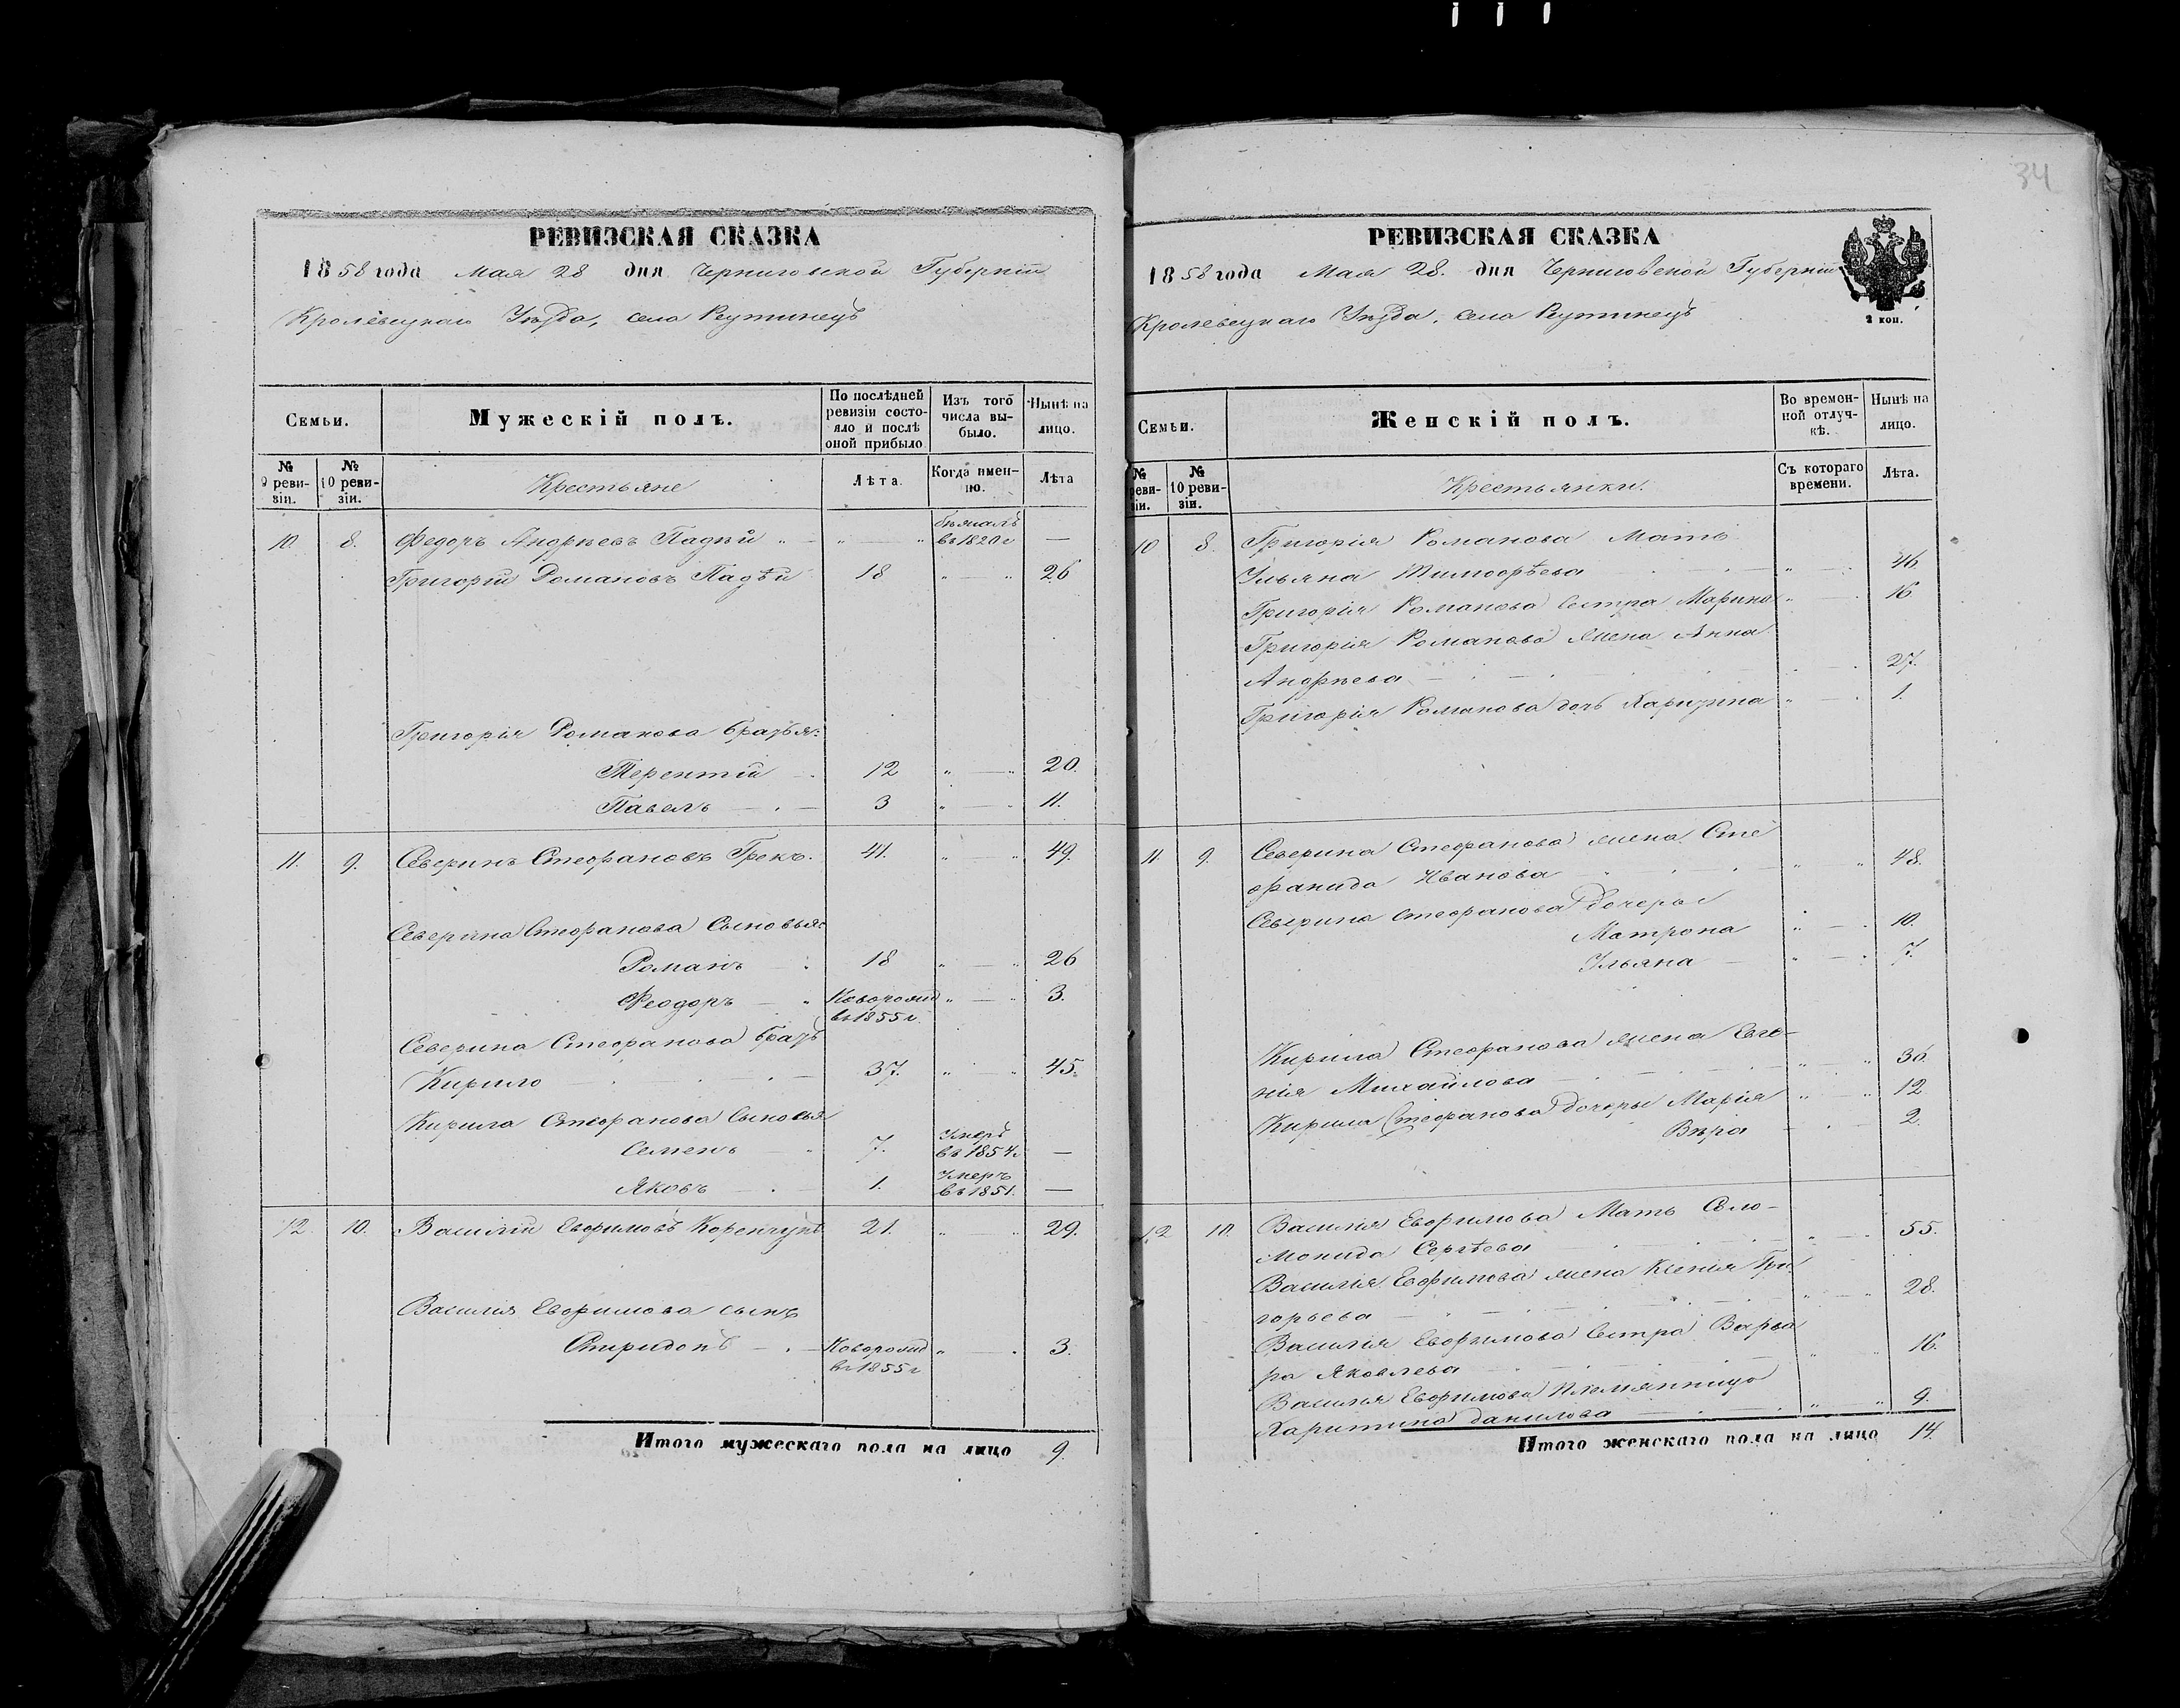 34
РЕВИЗСКАЯ СКАЗКА
1858 года Мая 28 дня Черниговской Губерніи
Кролевецкаго Уѣзда, села Реутинецъ
Семьи.
Мужескій полъ.
По послѣдней ревизіи состояло и послѣ оной прибыло
Изъ того числа выбыло.
Нынѣ на лицо.
№ 9 ревизіи.
№ 10 ревизіи.
Крестьяне
Лѣта.
Когда именно.
Лѣта
10. 8. Федоръ Андреевъ Падѣй " — " — " бѣжалъ въ 1820 г —
Григорій Романовъ Падѣй 18 " — " 26
Григорія Романова братья:
Терентій — 12 " — " 20.
Павелъ — . — 3 " — " 11.
11. 9. Северинъ Стефановъ Грекъ. 41. " " 49.
Северина Стефанова Сыновья:
Романъ — 18 " — " 26
Феодоръ — " Новорожд въ 1855 г. " — " 3.
Северина Стефанова братъ
Кирило — . — 37. " — " 45.
Кирила Стефанова Сыновья
Семенъ — " 7. Умеръ въ 1854 г —
Яковъ — . — 1. Умеръ въ 1851. —
12. 10. Василій Евфимовъ 21. " — " 29.
Василія Евфимова сынъ
Спиридонъ — . — Новорожд въ 1855 г " — " 3.
Итого мужескаго пола на лицо 9.
РЕВИЗСКАЯ СКАЗКА
1858 года Мая 28. дня Черниговской Губерніи
Кролевецкаго Уѣзда, села Реутинецъ
2 коп.
Семьи.
Женскій полъ.
Во временной отлучкѣ.
Нынѣ на лицо.
№ реви-зіи.
№ 10 ревизіи.
Крестьянки.
Съ котораго времени.
Лѣта.
10 8. Григорія Романова Мать
Ульяна Тимофѣева " — . 46
Григорія Романова Сестра Марина " — . 16
Григорія Романова жена Анна
Андреева — . — . — 27.
Григорія Романова дочь " — . 1.
11. 9. Северина Стефанова жена Сте
фанида Иванова " " 48.
Северина Стефанова дочеры
Матрона " — . 10.
Ульяна — " — . 7.
Кирила Стефанова жена Евге-
нія Михайлова " — "
Кирила Стефанова дочеры Марія " — " 12
Вѣра — . — 2.
12 10. Василія Евфимова Мать Соло-
монида Сергѣева " — . 55.
Василія Евфимова жена Ксенія Гри-
горьева — " — " 28.
Василія Евфимова Сестра Варва
ра Яковлева " " 16.
Василія Евфимова племянница
Харитина Данилова — . — " — " 9.
Итого женскаго пола на лицо 14.